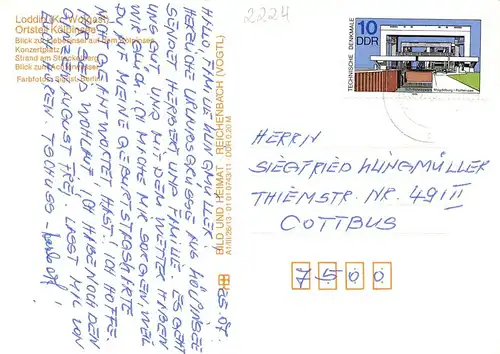 2224
Loddin (Kr. Wolgast)
Ortsteil Kölpinsee
Konzertplatz
Strand am Streckelsberg
HALLO FAMILIE KLINGMÜLLER!
HERZLICHE URLAUBSGRÜSSE AUS KÖLPINSEE
SENDET HERBERT UND FAMILIE. ES GEHT
UNS GUT UND MIT DEM WETTER HABEN
WIR GLÜCK. ICH MACHE MIR SORGEN, WEIL
DU AUF MEINE GEBURTSTAGSKARTE
NICHT GEANTWORTET HAST. ICH HOFFE,
IHR SEID WOHLAUF. ICH HABE NOCH DEN
AUGUST FREI. LASST MAL VON
EUCH HÖREN. TSCHÜSS
25.07.
BILD UND HEIMAT REICHENBACH (VOGTL)
A1/III/26/13 01 01 0743/11 DDR 0,20 M
10
DDR
TECHNISCHE DENKMALE
Magdeburg-Rothensee
HERRN
SIEGFRIED KLINGMÜLLER
THIEMSTR. NR. 49 III
COTTBUS
7500